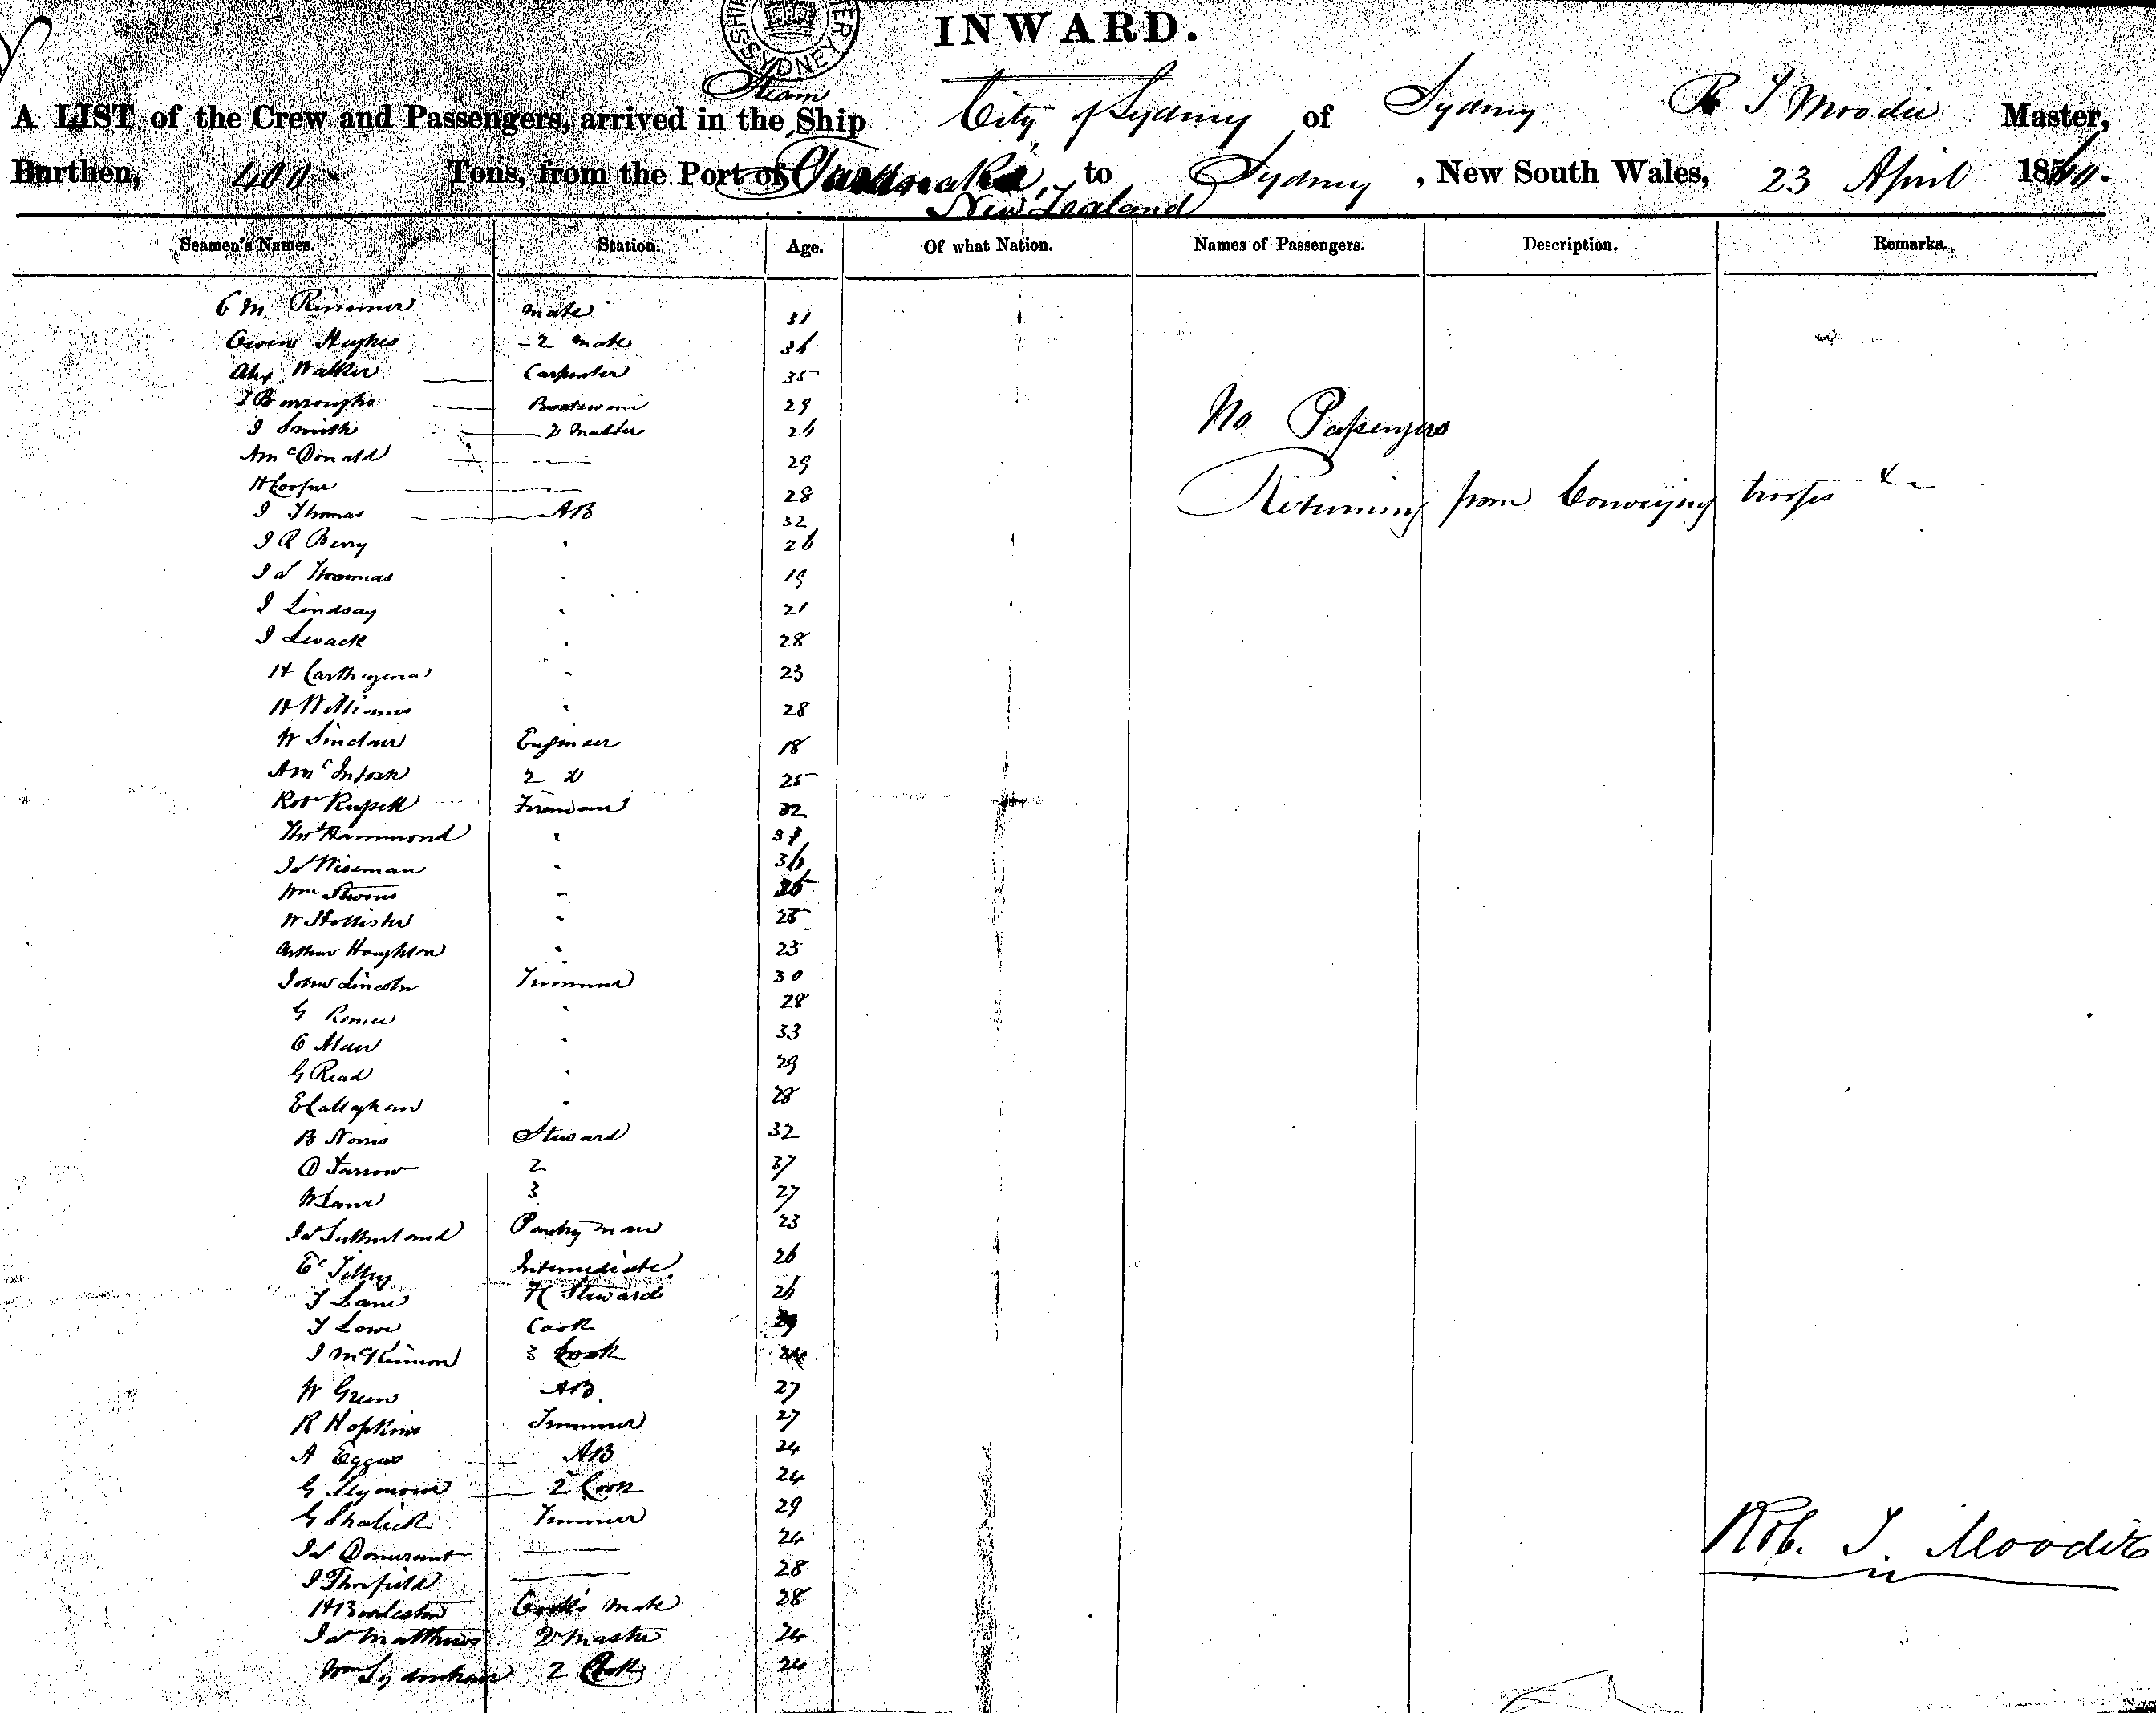 INWARD.
A LIST of the Crew and Passengers, arrived in the Steam Ship City of Sydney of Sydney R T Moodie Master,
Burthen, 400 Tons, from the Port of Taranaki New Zealand to Sydney, New South Wales, 23 April 1860.
Seamen's Names. Station. Age. Of what Nation. Names of Passengers. Description. Remarks.
C M Rimmer mate 31
Owen Hughes 2 mate 36
Alex Walker Carpenter 35
J Burroughs Boatswain 29
J Smith Qr Master 26
A McDonald 29
H Cooper 28
J Thomas AB 32
J R Berry " 26
Js Thommas " 19
J Lindsay " 21
J Levack " 28
H Carthagena " 23
H Williams " 28
W Sinclair Engineer 18
A McIntosh 2 D 25
Robt Russell Fireman 32
Thos Hammond "
Js Wiseman " 36
Wm Stevens "
W Hollister " 25
Arthur Houghton " 23
John Lincoln Trimmer 30
G " 28
C " 33
G Read " 29
E Callaghan " 28
B Norris Steward 32
D Farrow 2 37
W Lane 3 27
Js Sutherland Pantry man 23
E Tilley Intermediate 26
T Lane F C Steward 26
T Lowe Cook
J McKinnon 3 Cook
W Green AB 27
R Hopkins Trimmer 27
A AB 24
G Seymour 2 Cook 24
G Trimmer 29
Js 24
J 28
H Cook's mate 28
Js Matthews Qr Master 24
Wm Sydenham 2 Cook 24
No Passengers
Returning from Conveying troops &c
Rob. T. Moodie